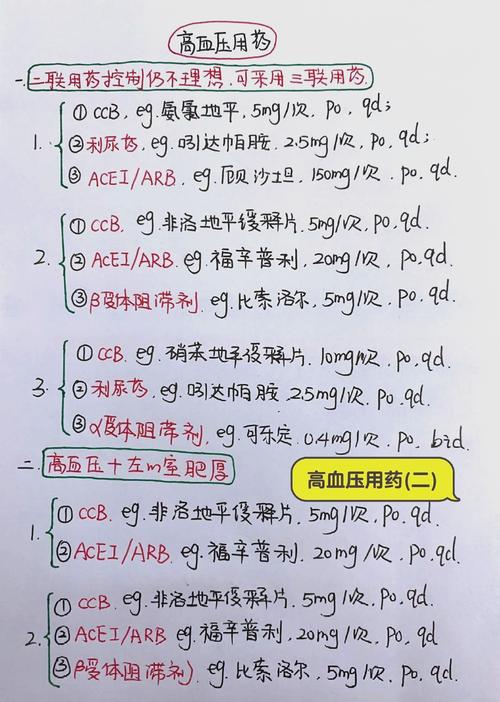 高血压用药
一.二联用药控制仍不理想,可采用三联用药.
1.
①CCB, eg.氨氯地平, 5mg/次, po, qd;
②利尿药, eg.吲达帕胺, 2.5mg/次, po, qd;
③ACEI/ARB, eg.厄贝沙坦, 150mg/次, po, qd.
2.
①CCB. eg.非洛地平缓释片, 5mg/次, po, qd.
②ACEI/ARB. eg.福辛普利, 20mg/次, po, qd.
③β受体阻滞剂. eg.比索洛尔, 5mg/次, po, qd.
3.
①CCB. eg.硝苯地平缓释片. 10mg/次. po. qd.
②利尿药. eg.吲达帕胺. 2.5mg/次. po. qd.
③α受体阻滞剂. eg.可乐定. 0.4mg/次. po. bid.
二.高血压+左m室肥厚
高血压用药(二)
1.
①CCB. eg.非洛地平缓释片, 5mg/次, po, qd.
②ACEI/ARB. eg.福辛普利, 20mg/次, po, qd.
2.
①CCB. eg.非洛地平缓释片. 5mg/次, po, qd.
②ACEI/ARB eg.福辛普利, 20mg/次, po, qd
③β受体阻滞剂). eg.比索洛尔, 5mg/次, po, qd.